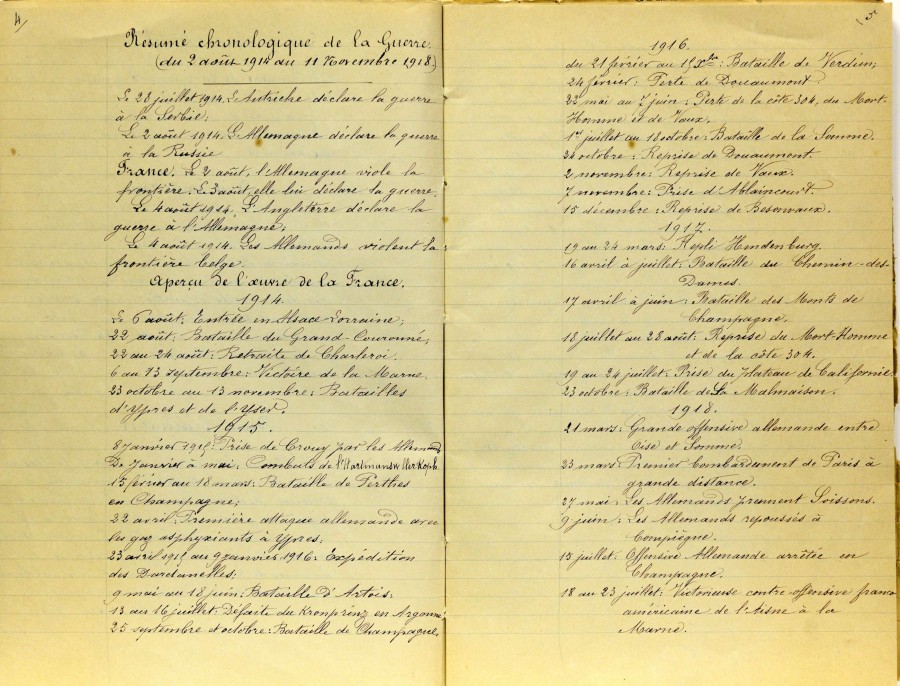 4
Résumé chronologique de la Guerre.
(du 2 août 1914 au 11 Novembre 1918)
Le 28 juillet 1914. L'Autriche déclare la guerre
à la Serbie;
Le 2 août 1914. L'Allemagne déclare la guerre
à la Russie
France. Le 2 août, l'Allemagne viole la
frontière. Le 3 août, elle lui déclare la guerre.
Le 4 août 1914. L'Angleterre déclare la
guerre à l'Allemagne;
Le 4 août 1914. Les Allemands violent la
frontière belge.
Aperçu de l'œuvre de la France.
1914.
Le 6 août: Entrée en Alsace-Lorraine;
22 août: Bataille du Grand-Couronné;
22 au 24 août: Retraite de Charleroi.
6 au 13 septembre: Victoire de la Marne.
23 octobre au 13 novembre: Batailles
d'Ypres et de l'Yser.
1915.
8 Janvier 1915: Prise de Crouy par les Allemands
De Janvier à mai: Combats de l'Hartmanswillerkopf.
15 février au 18 mars: Bataille de Perthes
en Champagne;
22 avril: Première attaque allemande avec
les gaz asphyxiants à Ypres;
23 avril 1915 au 9 janvier 1916: Expédition
des Dardanelles;
9 mai au 18 juin: Bataille d'Artois:
13 au 16 juillet: Défaite du Kronprinz en Argonne
25 septembre et octobre: Bataille de Champagne.
1916.
du 21 février au 15 Xbre: Bataille de Verdun;
24 février: Perte de Douaumont
22 mai au 7 juin: Perte de la côte 304, du Mort-
Homme et de Vaux.
1er juillet au 18 octobre: Bataille de la Somme.
24 octobre: Reprise de Douaumont.
2 novembre: Reprise de Vaux.
7 novembre: Prise d'Ablaincourt.
15 décembre: Reprise de Besonvaux.
1917.
19 au 24 mars: Repli Hindenburg.
16 avril à juillet: Bataille du Chemin-des-
Dames.
17 avril à juin: Bataille des Monts de
Champagne.
18 juillet au 28 août: Reprise du Mort-Homme
et de la côte 304.
19 au 24 juillet: Prise du plateau de Californie.
23 octobre: Bataille de La Malmaison.
1918.
21 mars: Grande offensive allemande entre
Oise et Somme
23 mars: Premier bombardement de Paris à
grande distance.
27 mai: Les Allemands prennent Soissons.
9 juin: Les Allemands repoussés à
Compiègne.
15 juillet: Offensive Allemande arrêtée en
Champagne.
18 au 23 juillet: Victorieuse contre-offensive franco
américaine de l'Aisne à la
Marne.